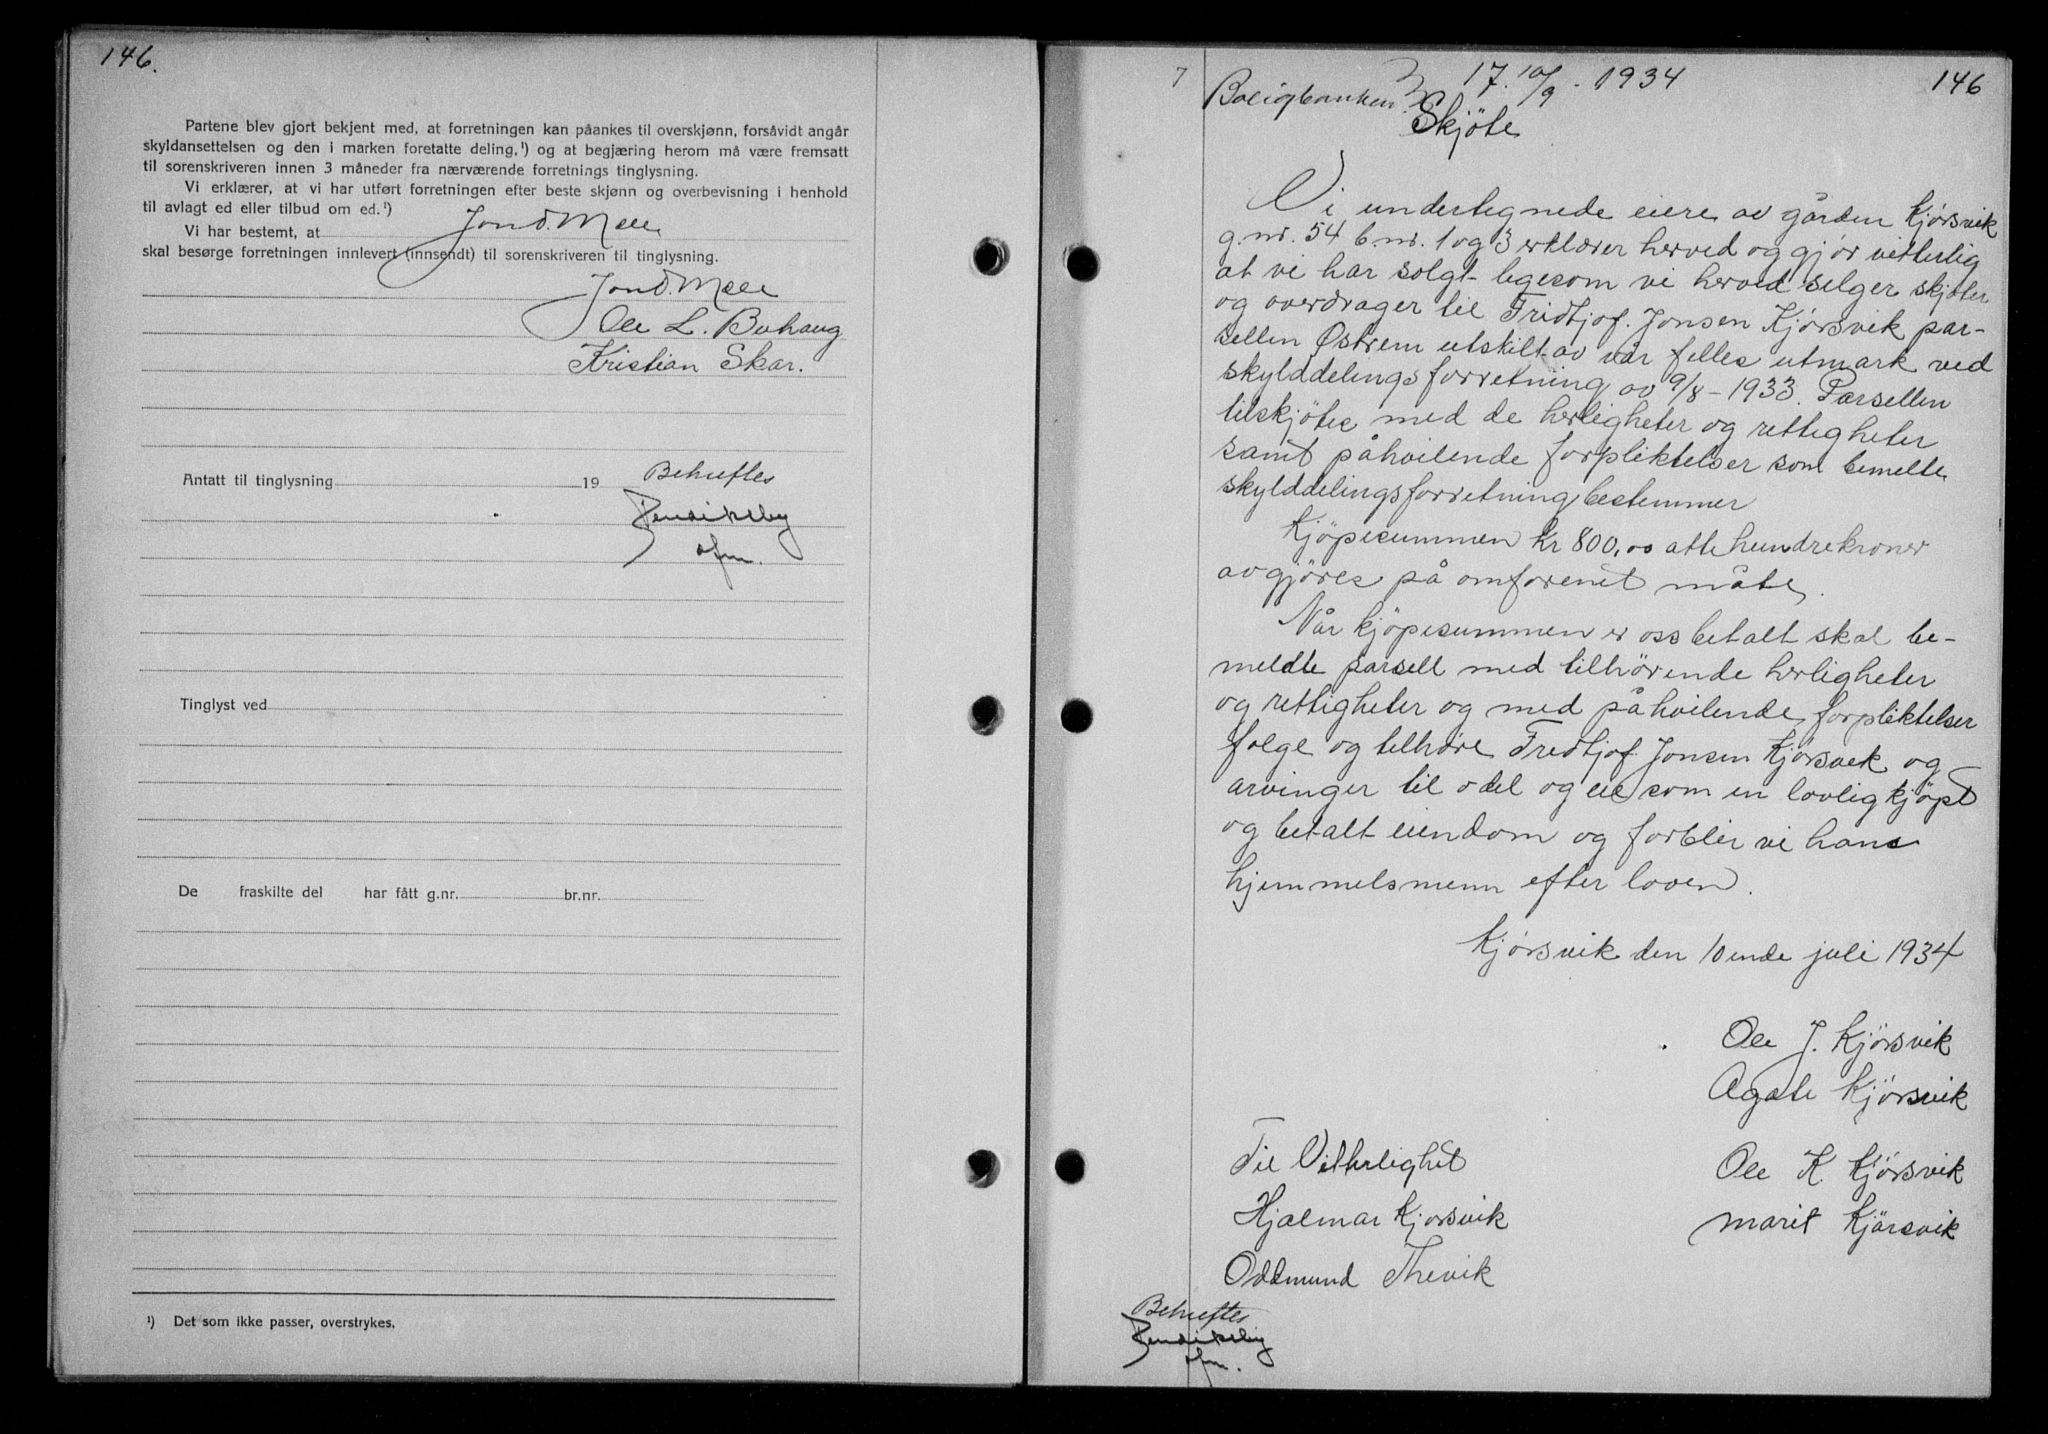 146.
Partene blev gjort bekjent med, at forretningen kan påankes til overskjønn, forsåvidt angår
skyldansettelsen og den i marken foretatte deling,¹) og at begjæring herom må være fremsatt
til sorenskriveren innen 3 måneder fra nærværende forretnings tinglysning.
Vi erklærer, at vi har utført forretningen efter beste skjønn og overbevisning i henhold
til avlagt ed eller tilbud om ed.¹)
Vi har bestemt, at Jon O. Mele
skal besørge forretningen innlevert (innsendt) til sorenskriveren til tinglysning.
Jon O. Mele
Ole L. Buhaug
Kristian Skar.
Antatt til tinglysning 19
Bekreftes
Tinglyst ved
De fraskilte del har fått g.nr. br.nr.
¹) Det som ikke passer, overstrykes.
7 Boligbanken 17. 10/9 - 1934 146
Skjöte
Vi undertegnede eiere av gården Kjørsvik
g.nr. 54 b.nr. 1 og 3 erklærer herved og gjør vitterlig
at vi har solgt ligesom vi herved selger skjøter
og overdrager til Fridtjof Jonsen Kjørsvik par-
sellen Østrem utskilt av vår felles utmark ved
skylddelingsforretning av 9/8 - 1933. Parsellen
tilskjötes med de herligheter og rettigheter
samt påhvilende forpliktelser som bemelte
skylddelingsforretning bestemmer
Kjöpesummen kr 800,00 åtte hundre kroner
avgjöres på omforenet måte.
Når kjöpesummen er oss betalt skal be-
meldte parsell med tilhørende herligheter
og rettigheter og med påhvilende forpliktelser
følge og tilhøre Fridtjof Jonsen Kjørsvik og
arvinger til odel og eie som en lovlig kjöpt
og betalt eiendom og forblir vi hans
hjemmelsmenn efter loven.
Kjørsvik den 10ende juli 1934
Ole J. Kjørsvik
Agate Kjørsvik
Til Vitterlighet
Ole K. Kjørsvik
Hjalmar Kjørsvik
Marit Kjörsvik
Oddmund Thevik
Bekreftes